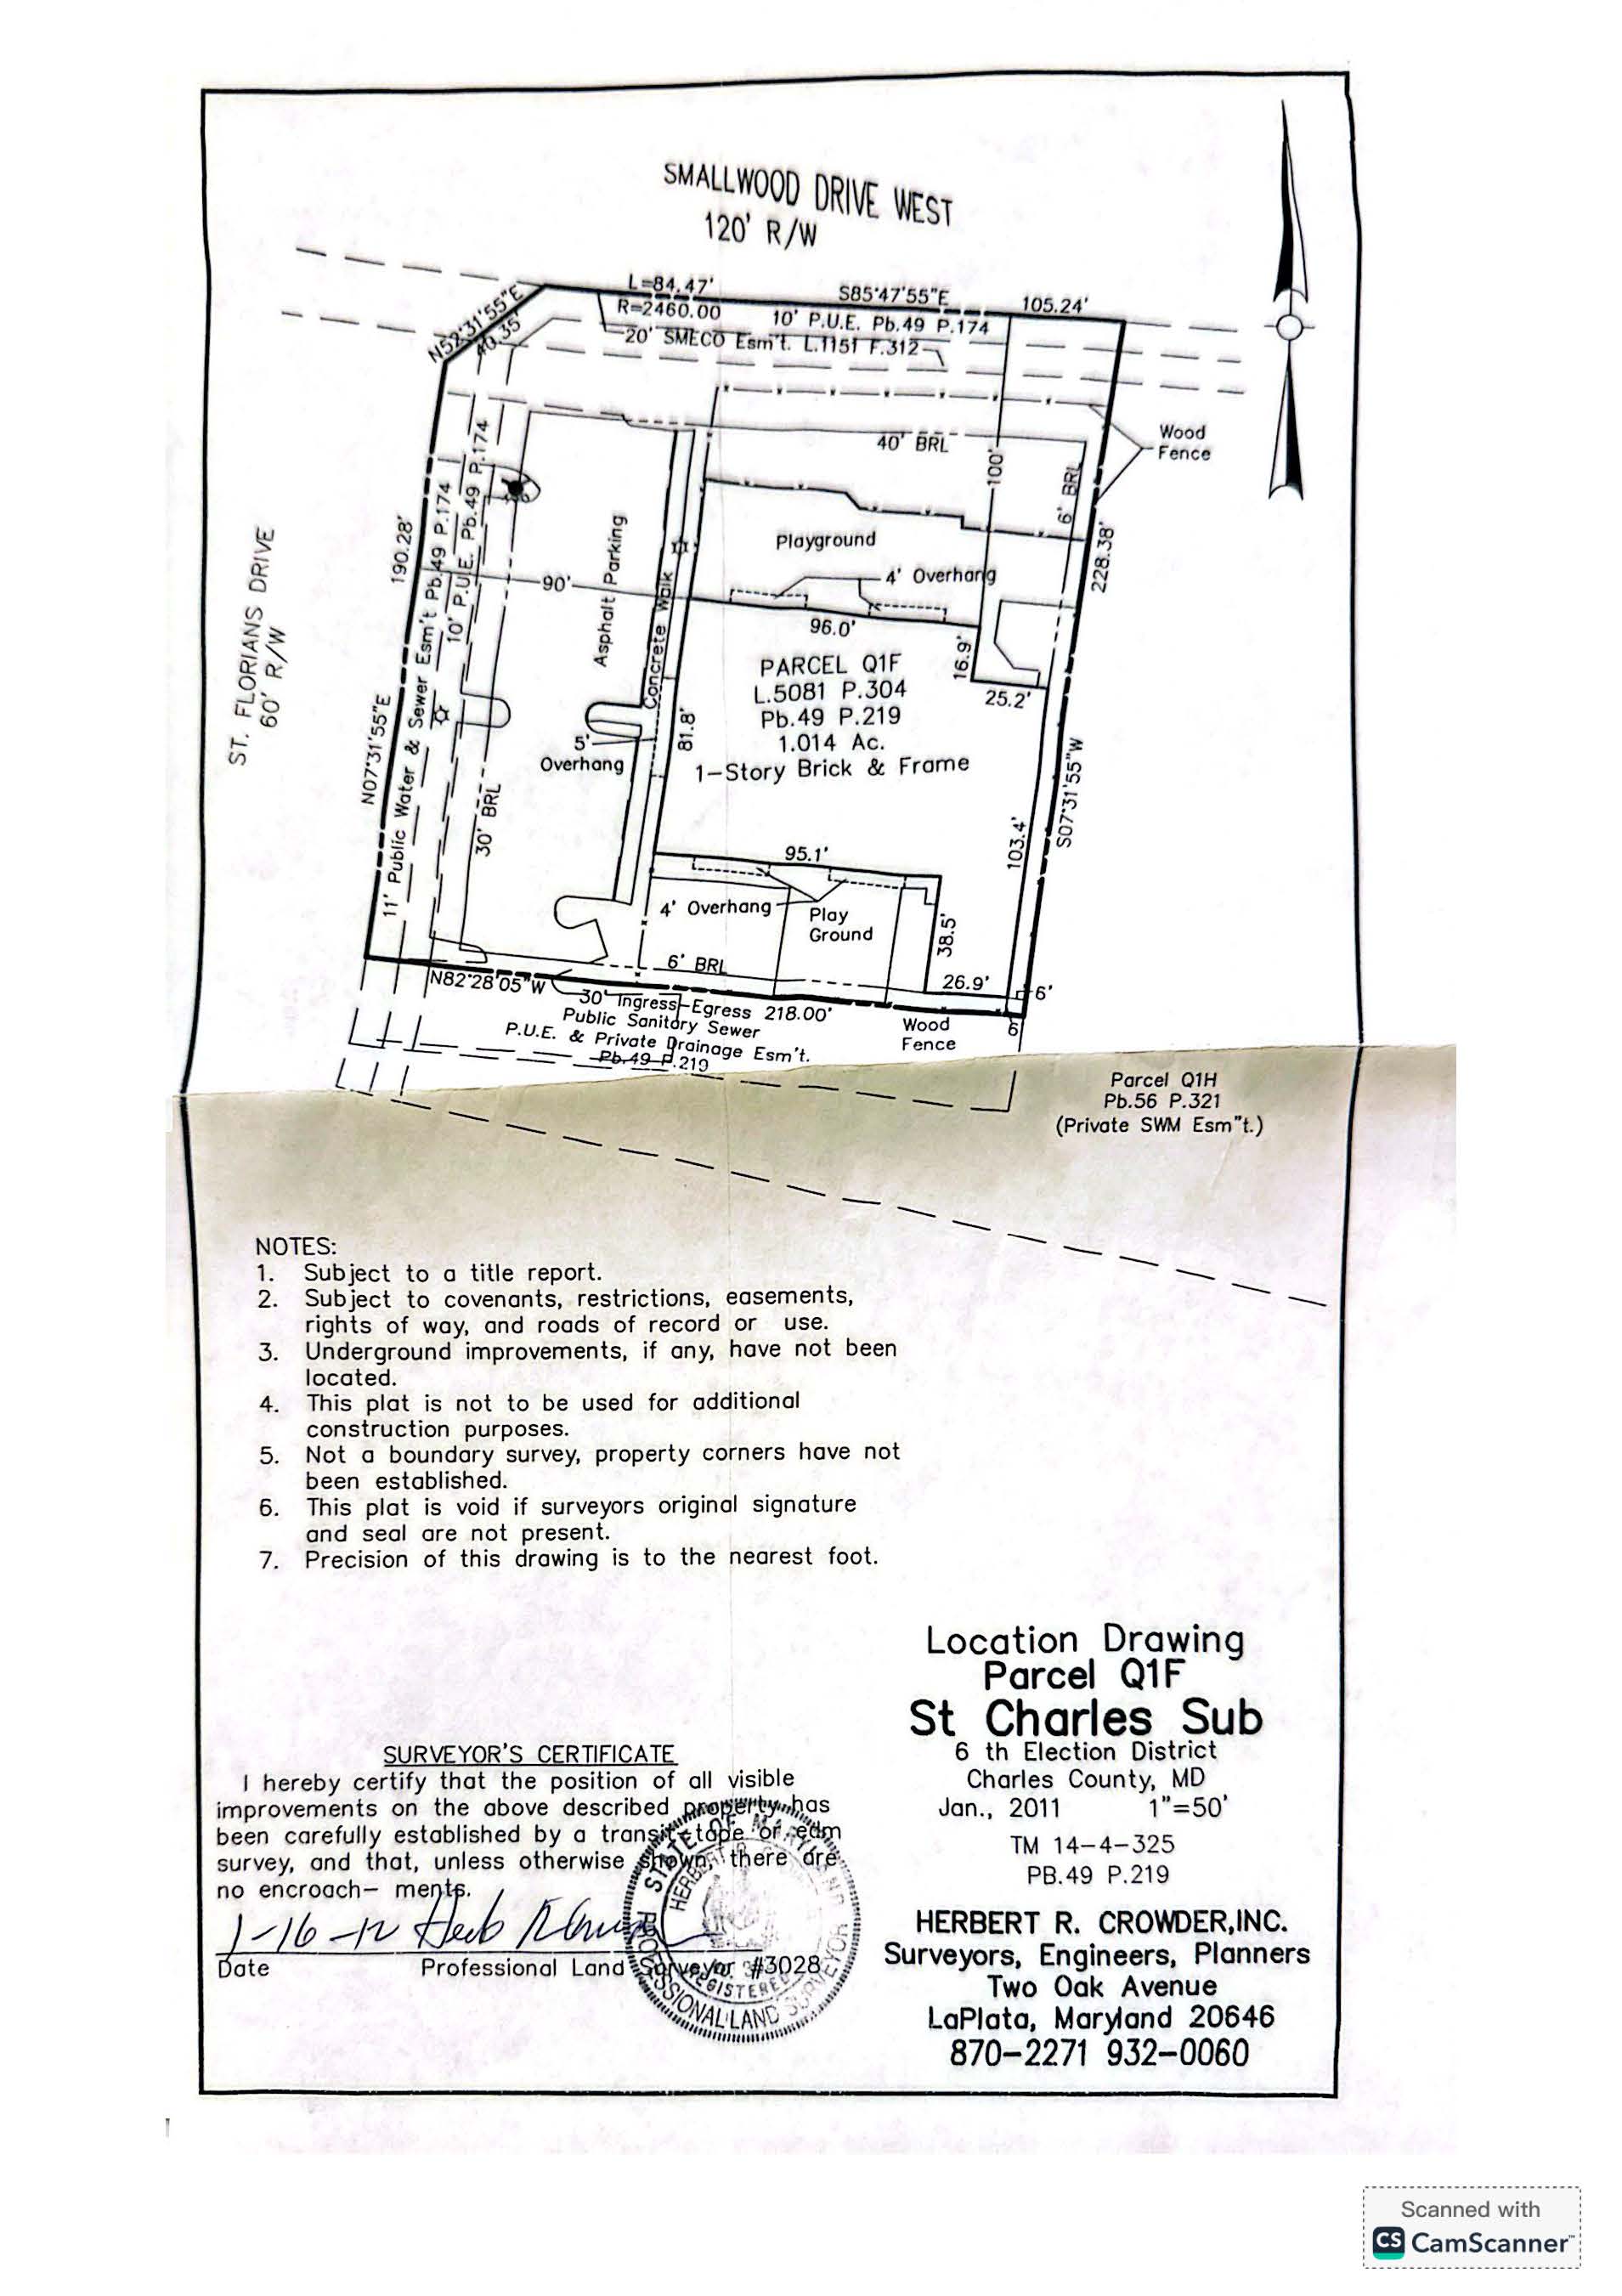 SMALLWOOD DRIVE WEST
120' R/W
L=84.47'
S85°47'55"E
105.24'
R=2460.00
10' P.U.E. Pb.49 P.174
20' SMECO Esm't. L.1151 F.312
N52°31'55"E
40.35'
Wood
Fence
40' BRL
100'
6' BRL
228.38'
S07°31'55"W
ST. FLORIANS DRIVE
60' R/W
190.28'
N07°31'55"E
11' Public Water & Sewer Esm't Pb.49 P.174
10' P.U.E. Pb.49 P.174
90'
30' BRL
Asphalt Parking
Concrete Walk
Playground
4' Overhang
96.0'
16.9'
25.2'
PARCEL Q1F
L.5081 P.304
Pb.49 P.219
1.014 Ac.
1-Story Brick & Frame
81.8'
5'
Overhang
103.4'
95.1'
4' Overhang
Play
Ground
38.5'
6' BRL
26.9'
6'
6'
N82°28'05"W
30' Ingress-Egress 218.00'
Public Sanitory Sewer
P.U.E. & Private Drainage Esm't.
Pb.49 P.219
Wood
Fence
Parcel Q1H
Pb.56 P.321
(Private SWM Esm"t.)
NOTES:
1. Subject to a title report.
2. Subject to covenants, restrictions, easements,
rights of way, and roads of record or use.
3. Underground improvements, if any, have not been
located.
4. This plat is not to be used for additional
construction purposes.
5. Not a boundary survey, property corners have not
been established.
6. This plat is void if surveyors original signature
and seal are not present.
7. Precision of this drawing is to the nearest foot.
Location Drawing
Parcel Q1F
St Charles Sub
6 th Election District
Charles County, MD
Jan., 2011 1"=50'
TM 14-4-325
PB.49 P.219
HERBERT R. CROWDER,INC.
Surveyors, Engineers, Planners
Two Oak Avenue
LaPlata, Maryland 20646
870-2271 932-0060
SURVEYOR'S CERTIFICATE
I hereby certify that the position of all visible
improvements on the above described property has
been carefully established by a transit-tape or edm
survey, and that, unless otherwise shown, there are
no encroach- ments.
1-16-12 Herb
Date Professional Land Surveyor #3028
STATE OF MARYLAND
HERBERT R.
REGISTERED
PROFESSIONAL LAND SURVEYOR
Scanned with
CS CamScanner